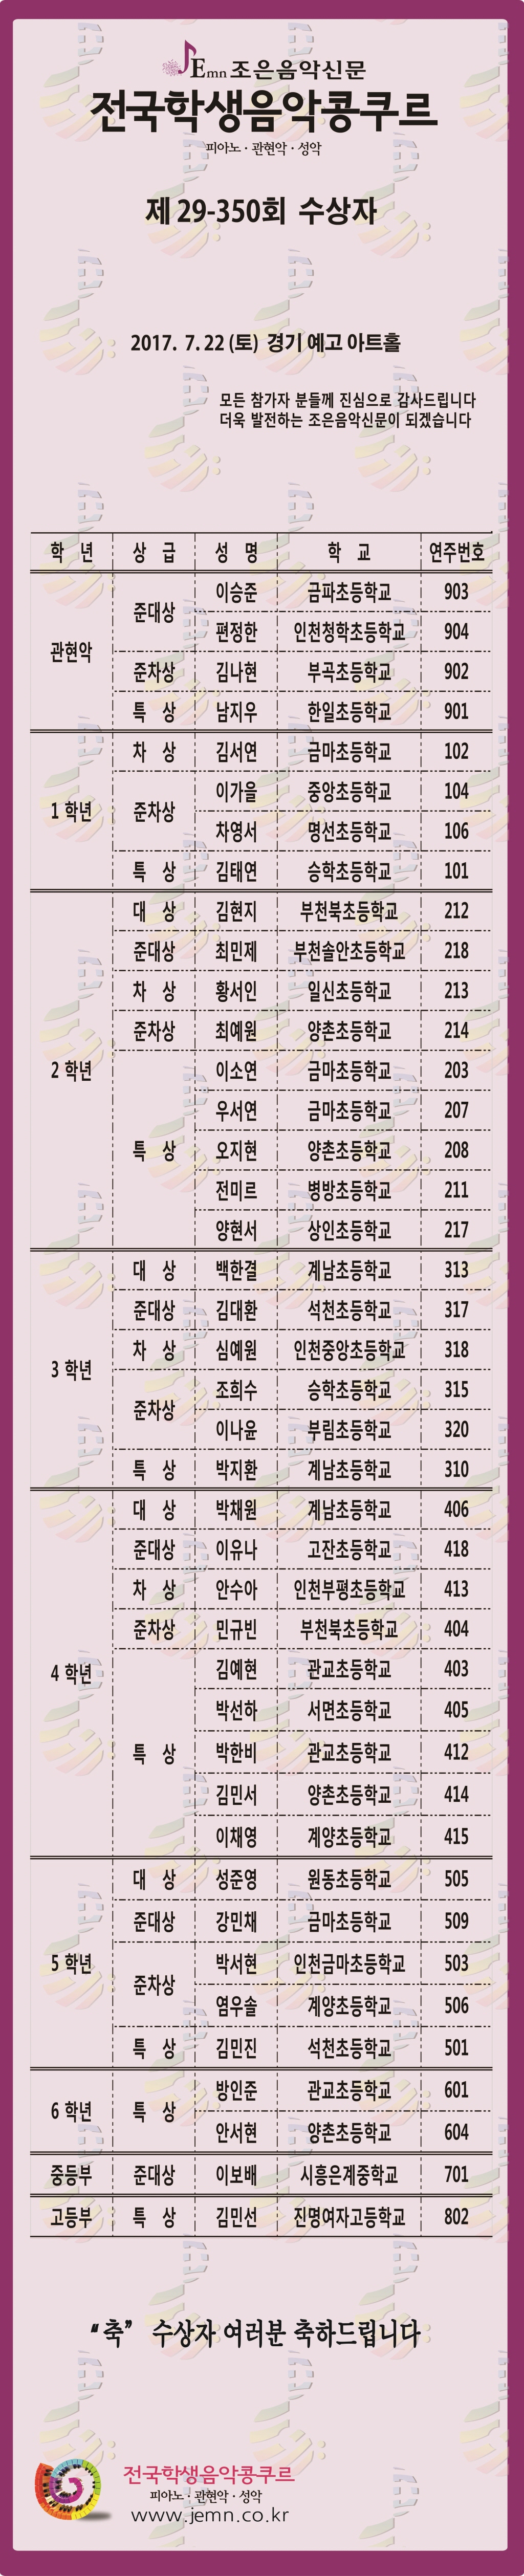 Emn 조은음악신문
전국학생음악콩쿠르
피아노 · 관현악 · 성악
제 29-350회 수상자
2017. 7. 22 (토) 경기 예고 아트홀
모든 참가자 분들께 진심으로 감사드립니다
더욱 발전하는 조은음악신문이 되겠습니다
학 년 상 급 성 명 학 교 연주번호
관현악 준대상 이승준 금파초등학교 903
편정한 인천청학초등학교 904
준차상 김나현 부곡초등학교 902
특 상 남지우 한일초등학교 901
1 학년 차 상 김서연 금마초등학교 102
준차상 이가을 중앙초등학교 104
차영서 명선초등학교 106
특 상 김태연 승학초등학교 101
2 학년 대 상 김현지 부천북초등학교 212
준대상 최민제 부천솔안초등학교 218
차 상 황서인 일신초등학교 213
준차상 최예원 양촌초등학교 214
특 상 이소연 금마초등학교 203
우서연 금마초등학교 207
오지현 양촌초등학교 208
전미르 병방초등학교 211
양현서 상인초등학교 217
3 학년 대 상 백한결 계남초등학교 313
준대상 김대환 석천초등학교 317
차 상 심예원 인천중앙초등학교 318
준차상 조희수 승학초등학교 315
이나윤 부림초등학교 320
특 상 박지환 계남초등학교 310
4 학년 대 상 박채원 계남초등학교 406
준대상 이유나 고잔초등학교 418
차 상 안수아 인천부평초등학교 413
준차상 민규빈 부천북초등학교 404
특 상 김예현 관교초등학교 403
박선하 서면초등학교 405
박한비 관교초등학교 412
김민서 양촌초등학교 414
이채영 계양초등학교 415
5 학년 대 상 성준영 원동초등학교 505
준대상 강민채 금마초등학교 509
준차상 박서현 인천금마초등학교 503
염우솔 계양초등학교 506
특 상 김민진 석천초등학교 501
6 학년 특 상 방인준 관교초등학교 601
안서현 양촌초등학교 604
중등부 준대상 이보배 시흥은계중학교 701
고등부 특 상 김민선 진명여자고등학교 802
“축” 수상자 여러분 축하드립니다
전국학생음악콩쿠르
피아노 · 관현악 · 성악
www.jemn.co.kr